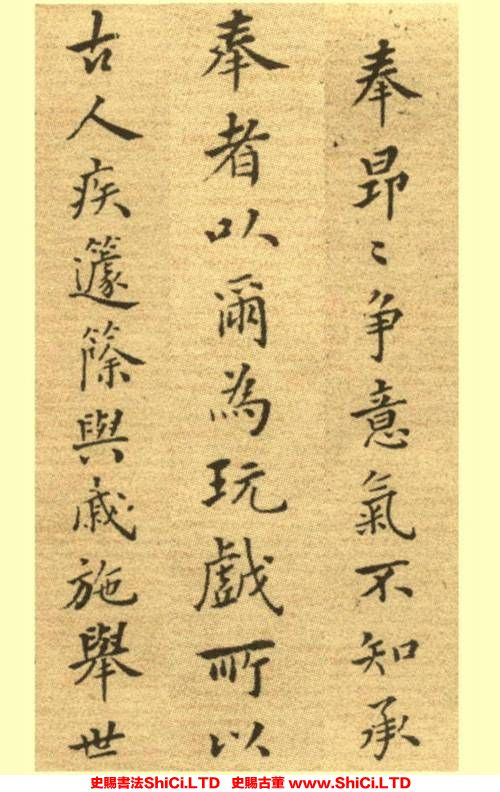 奉昂〻争意氣不知承
奉者以爾為玩戲所以
古人疾籧篨與戚施舉世
史賜書法ShiCi.LTD 史賜古董 www.ShiCi.LTD